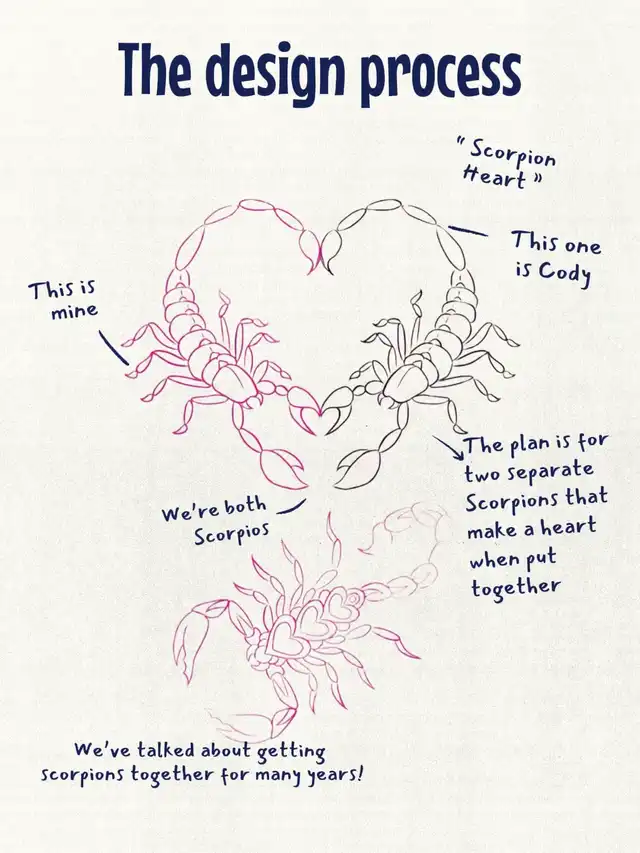 The design process
" Scorpion
Heart "
This one
is Cody
This is
mine
The plan is for
two separate
Scorpions that
make a heart
when put
together
We're both
Scorpios
We've talked about getting
scorpions together for many years!